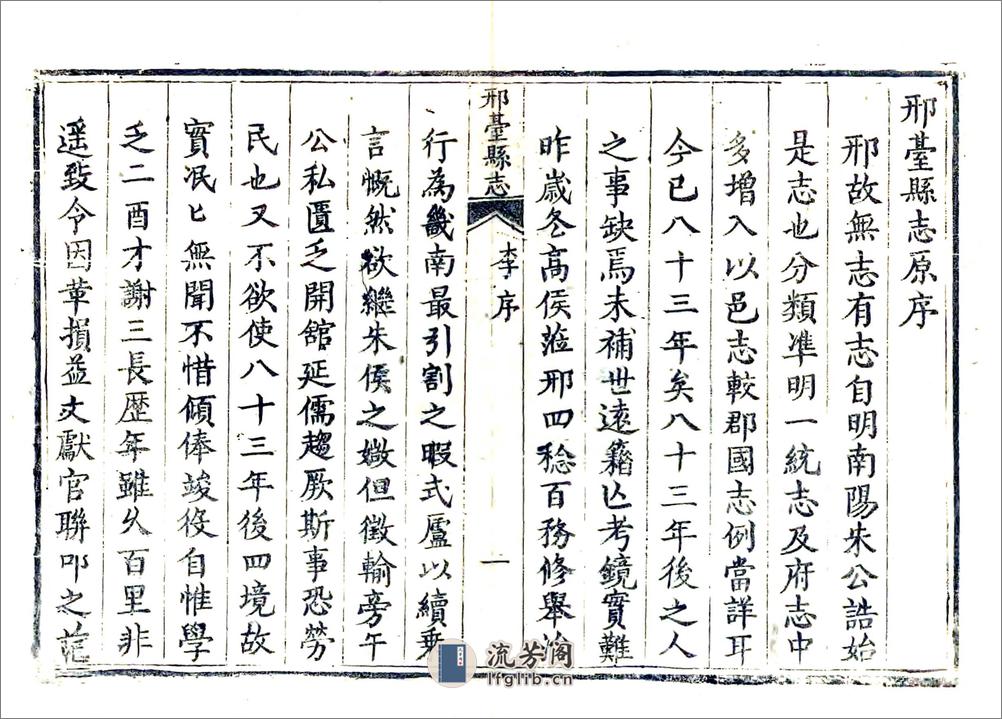 邢臺縣志原序
邢故無志有志自明南陽朱公誥始
是志也分類凖明一統志及府志中
多增入以邑志較郡國志例當詳耳
今已八十三年矣八十三年後之人
之事缺焉未補世遠籍亾考鏡實難
昨歲冬高侯蒞邢四稔百務修舉治
邢臺縣志
李序
一
行為畿南最引割之暇式廬以續乗
言慨然欲繼朱侯之媺但徵輸旁午
公私匱乏開舘延儒趨厥斯事恐勞
民也又不欲使八十三年後四境故
實泯匕無聞不惜傾俸竣役自惟學
乏二酉才謝三長歴年雖乆百里非
遥致令因革損益文獻官聯叩之茫
流芳阁
lfglib.cn